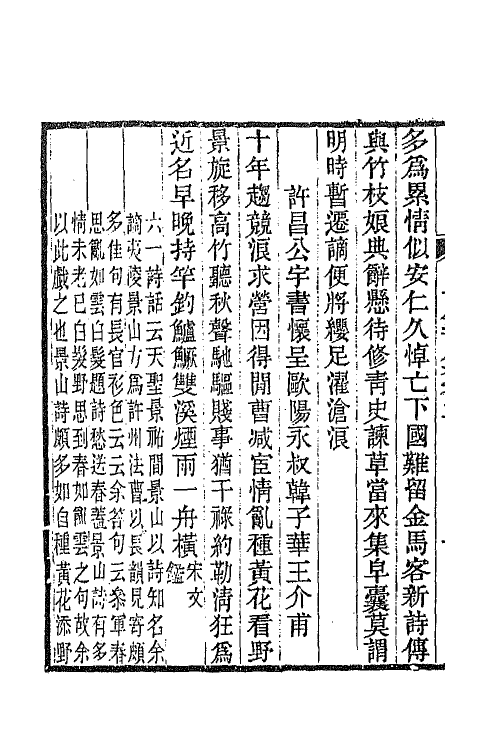 多爲累情似安仁久悼亡下國難留金馬客新詩傳
與竹枝娘典辭懸待修靑史諫草當來集皁囊莫謂
明時暫遷謫便將纓足濯滄浪
許昌公宇書懷呈歐陽永叔韓子華王介甫
十年趨競浪求營因得閒曹减宦情亂種黃花看野
景旋移高竹聽秋聲馳驅賤事猶干祿約勒淸狂爲
近名早晚持竿釣鱸鱖雙溪煙雨一舟橫宋文鑑
六一詩話云天聖景祐間景山以詩知名余
謫夷陵景山方爲許州法曹以長韻見寄頗
多佳句有長官衫色云云余答句云叅軍春
思亂如雲白髮題詩愁送春蓋景山詩有多
情未老已白髮野思到春如亂雲之句故余
以此戲之也景山詩頗多如自種黃花添野